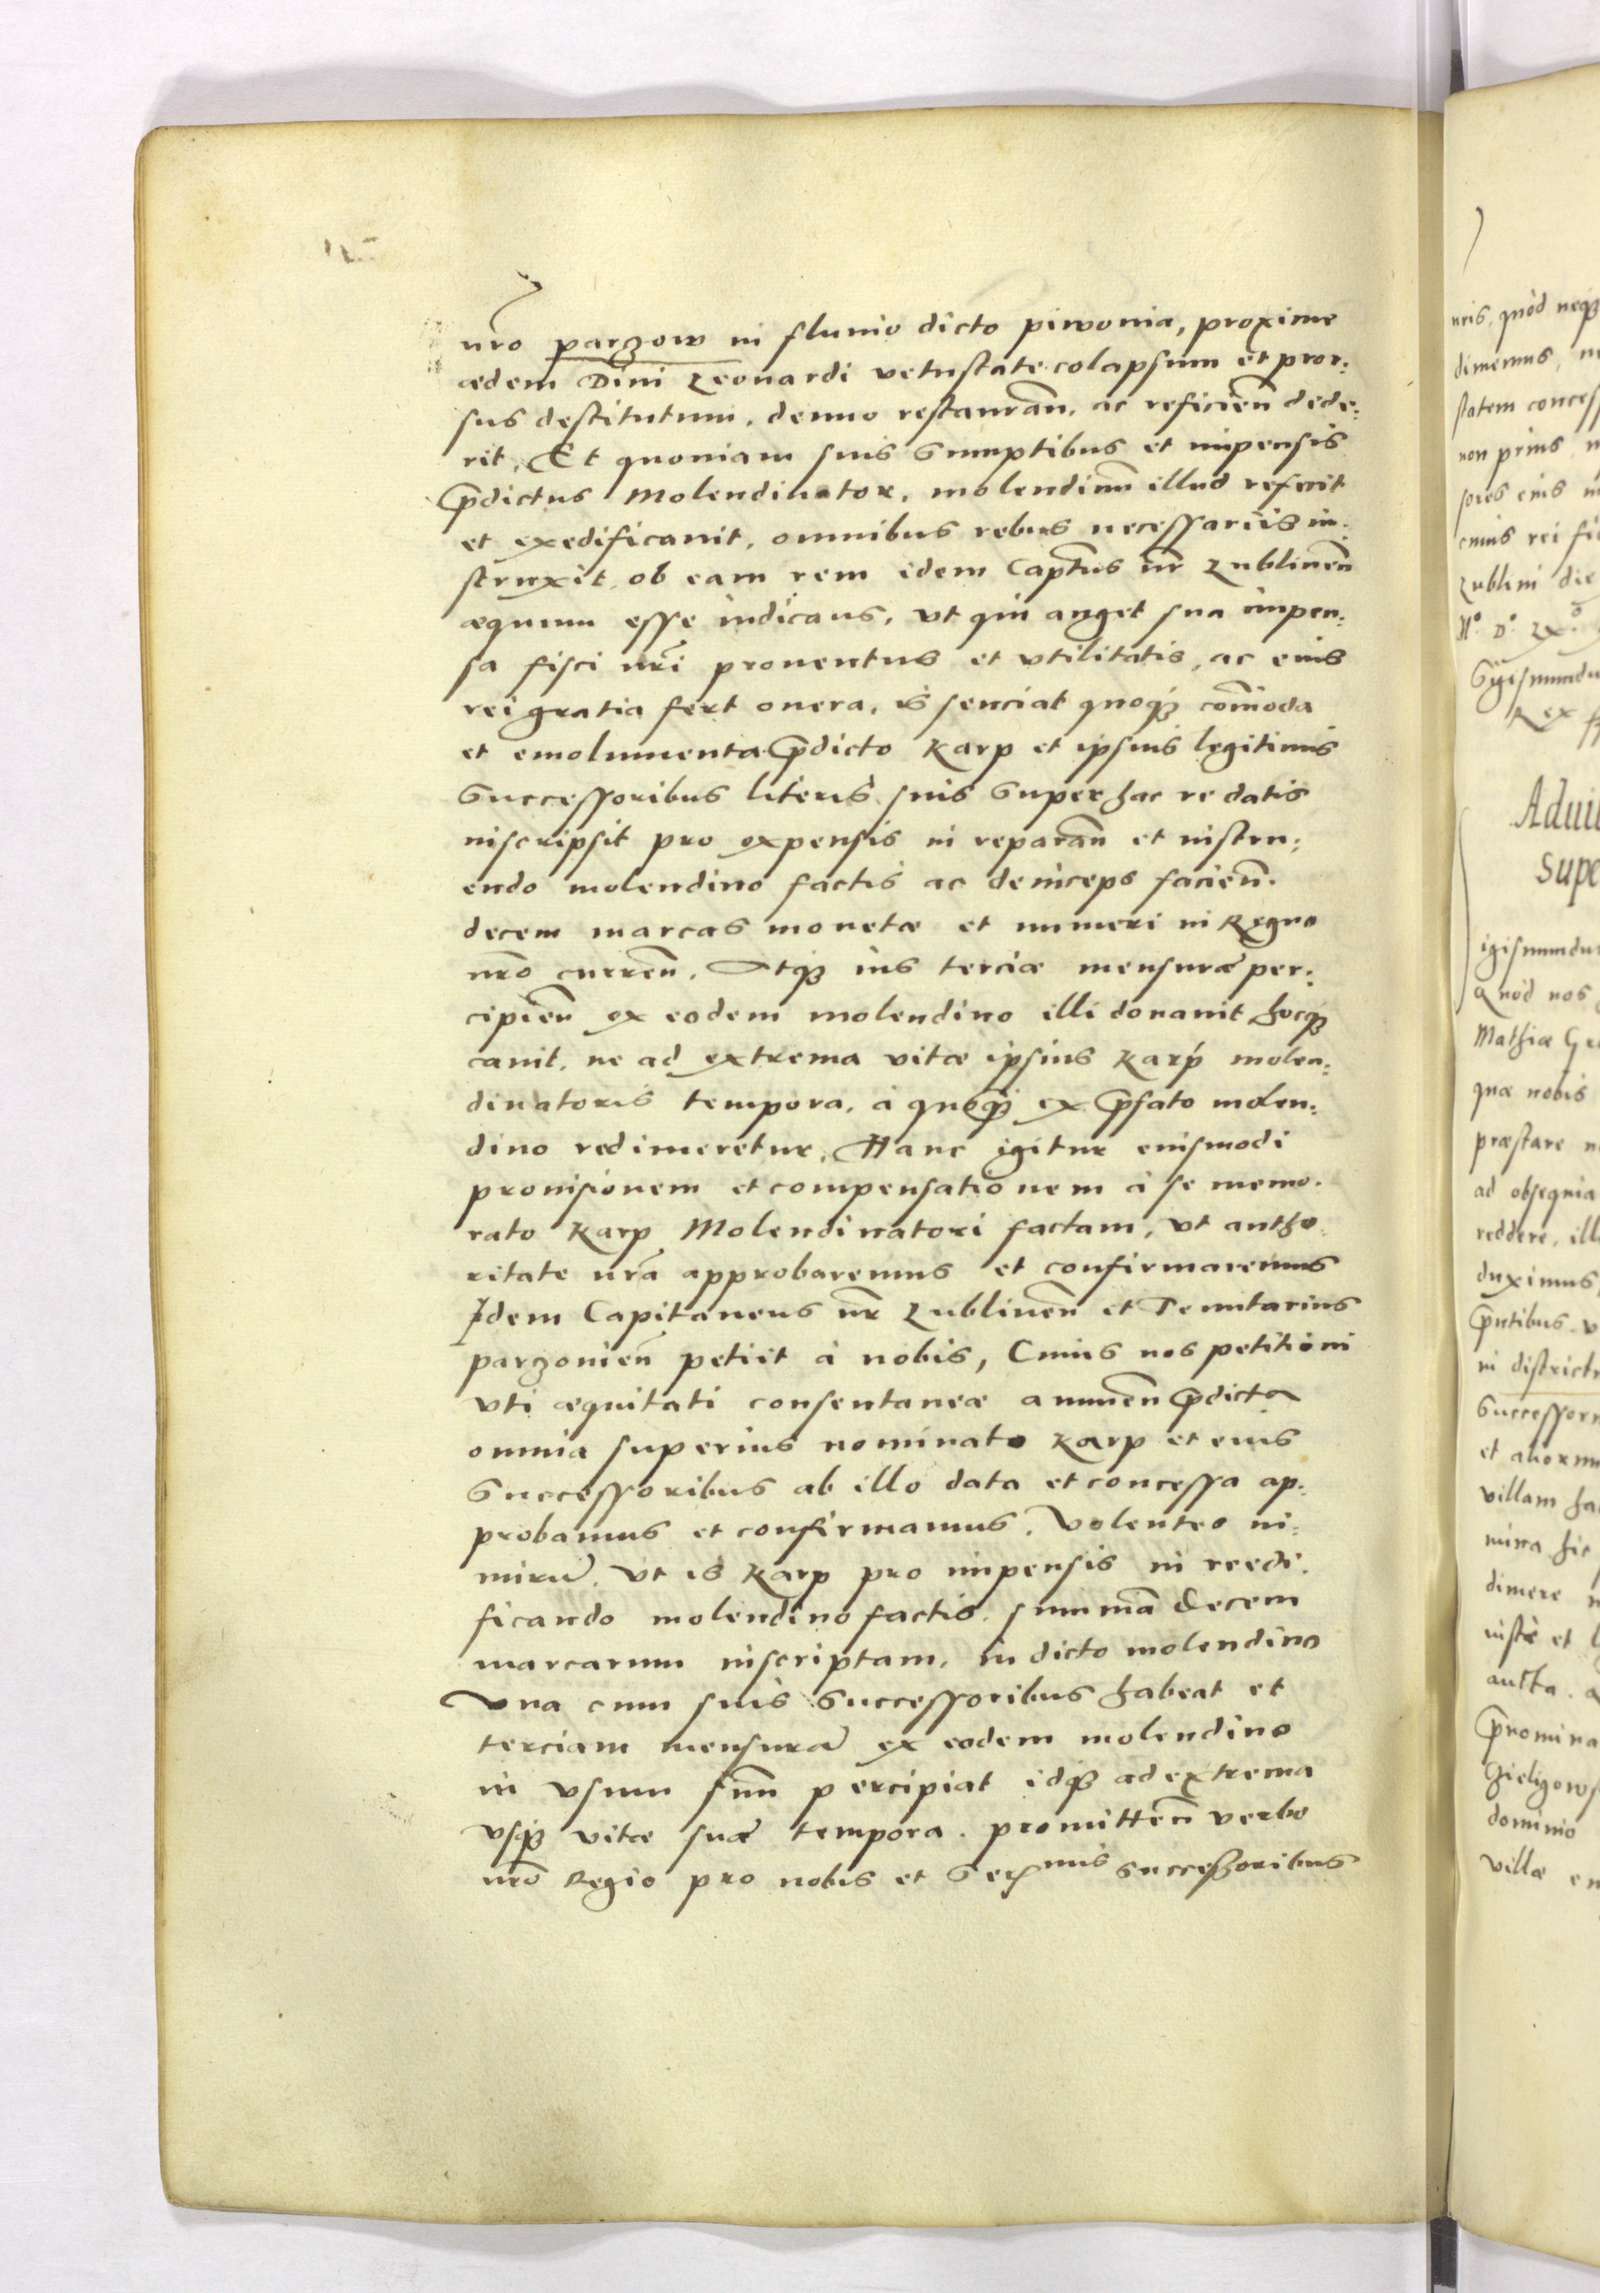 nro parzow in fluuio dicto piwonia, proxime
ædem Diui Leonardi vetustate colapsum et pror:
sus destitutum, denuo restauran̄, ac reficien̄ dede:
rit, Et quoniam suis Sumptibus et impensis
p̄dictus Molendinator, molendinū illud refecit
et exedificauit, omnibus rebus necessariis in:
struxit, ob eam rem idem Capt̄us nr̄ Lublineñ
æquum esse iudicans, vt qui auget sua impen:
sa fisci nr̄i prouentus et vtilitatis, ac eius
rei gratia fert onera, is senciat quoq3 com̄oda
et emolumenta p̄dicto Karp et ipsius legitimis
Successoribus literis suis Super hac re datis
inscripsit pro expensis in reparan̄ et instru:
endo molendino factis ac deinceps facien̄.
decem marcas monetæ et numeri in Regno
nr̄o curren̄. Atq3 ius terciæ mensuræ per:
cipien̄ ex eodem molendino illi donauit hocq3
cauit, ne ad extrema vitæ ipsius Karp molen:
dinatoris tempora, à quoq3 ex p̄fato molen:
dino redimeretur. Hanc igitur eiusmodi
prouisionem et compensationem à se memo.
rato Karp Molendinatori factam, vt autho
ritate nr̄a approbaremus et confirmaremus
Idem Capitaneus nr̄ Lublineñ et Tenutarius
parzouien̄ petiit à nobis, Cuius nos petitioni
vti æquitati consentaneæ annuen̄ p̄dicta
omnia superius nominato Karp et eius
Successoribus ab illo data et concessa ap:
probamus et confirmamus. Volentes ni:
mirū, vt is Karp pro impensis in reedi.
ficando molendino factis, summā decem
marcarum inscriptam, in dicto molendino
Vna cum suis Successoribus habeat et
terciam mensurā ex eodem molendino
in vsum suū percipiat idq3 ad extrema
vsq3 vitæ suæ tempora. promitten̄ verbo
nr̄o Regio pro nobis et Ser^mis successoribus
nris, quòd neq3
dimemus,
statem concess
non prius
sores eius
cuius rei fi
Lublini die
Mº. Dº. LXº.
Sigismundu
Rex
Adui
Supe
igismundu
Quod nos
Mathiæ
quæ nobis
præstare
ad obsequia
reddere, ill
duximus
p̄ntibus.
in districtu
Successoru
et alioxum
villam ha
dimere
iustè et
dominio
villæ